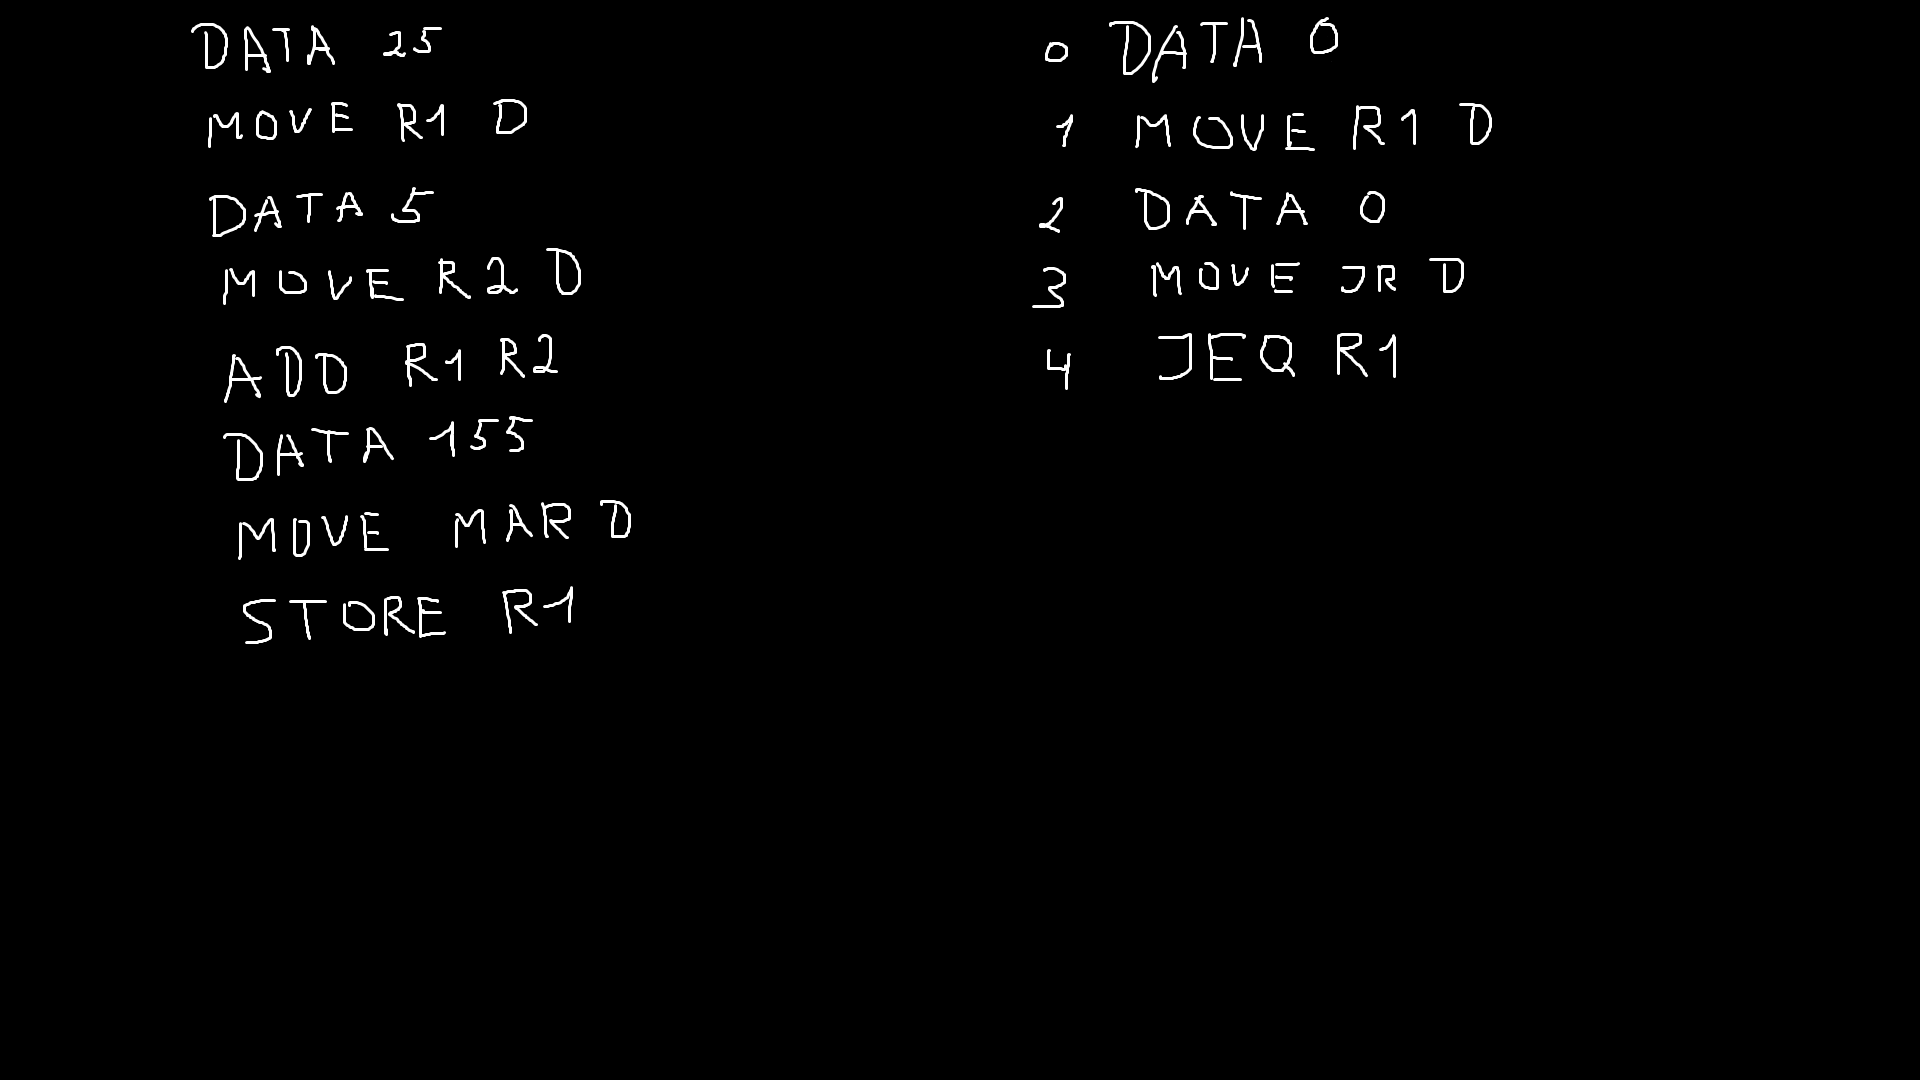 DATA 25
MOVE R1 D
DATA 5
MOVE R2 D
ADD R1 R2
DATA 155
MOVE MAR D
STORE R1
0 DATA 0
1 MOVE R1 D
2 DATA 0
3 MOVE JR D
4 JEQ R1